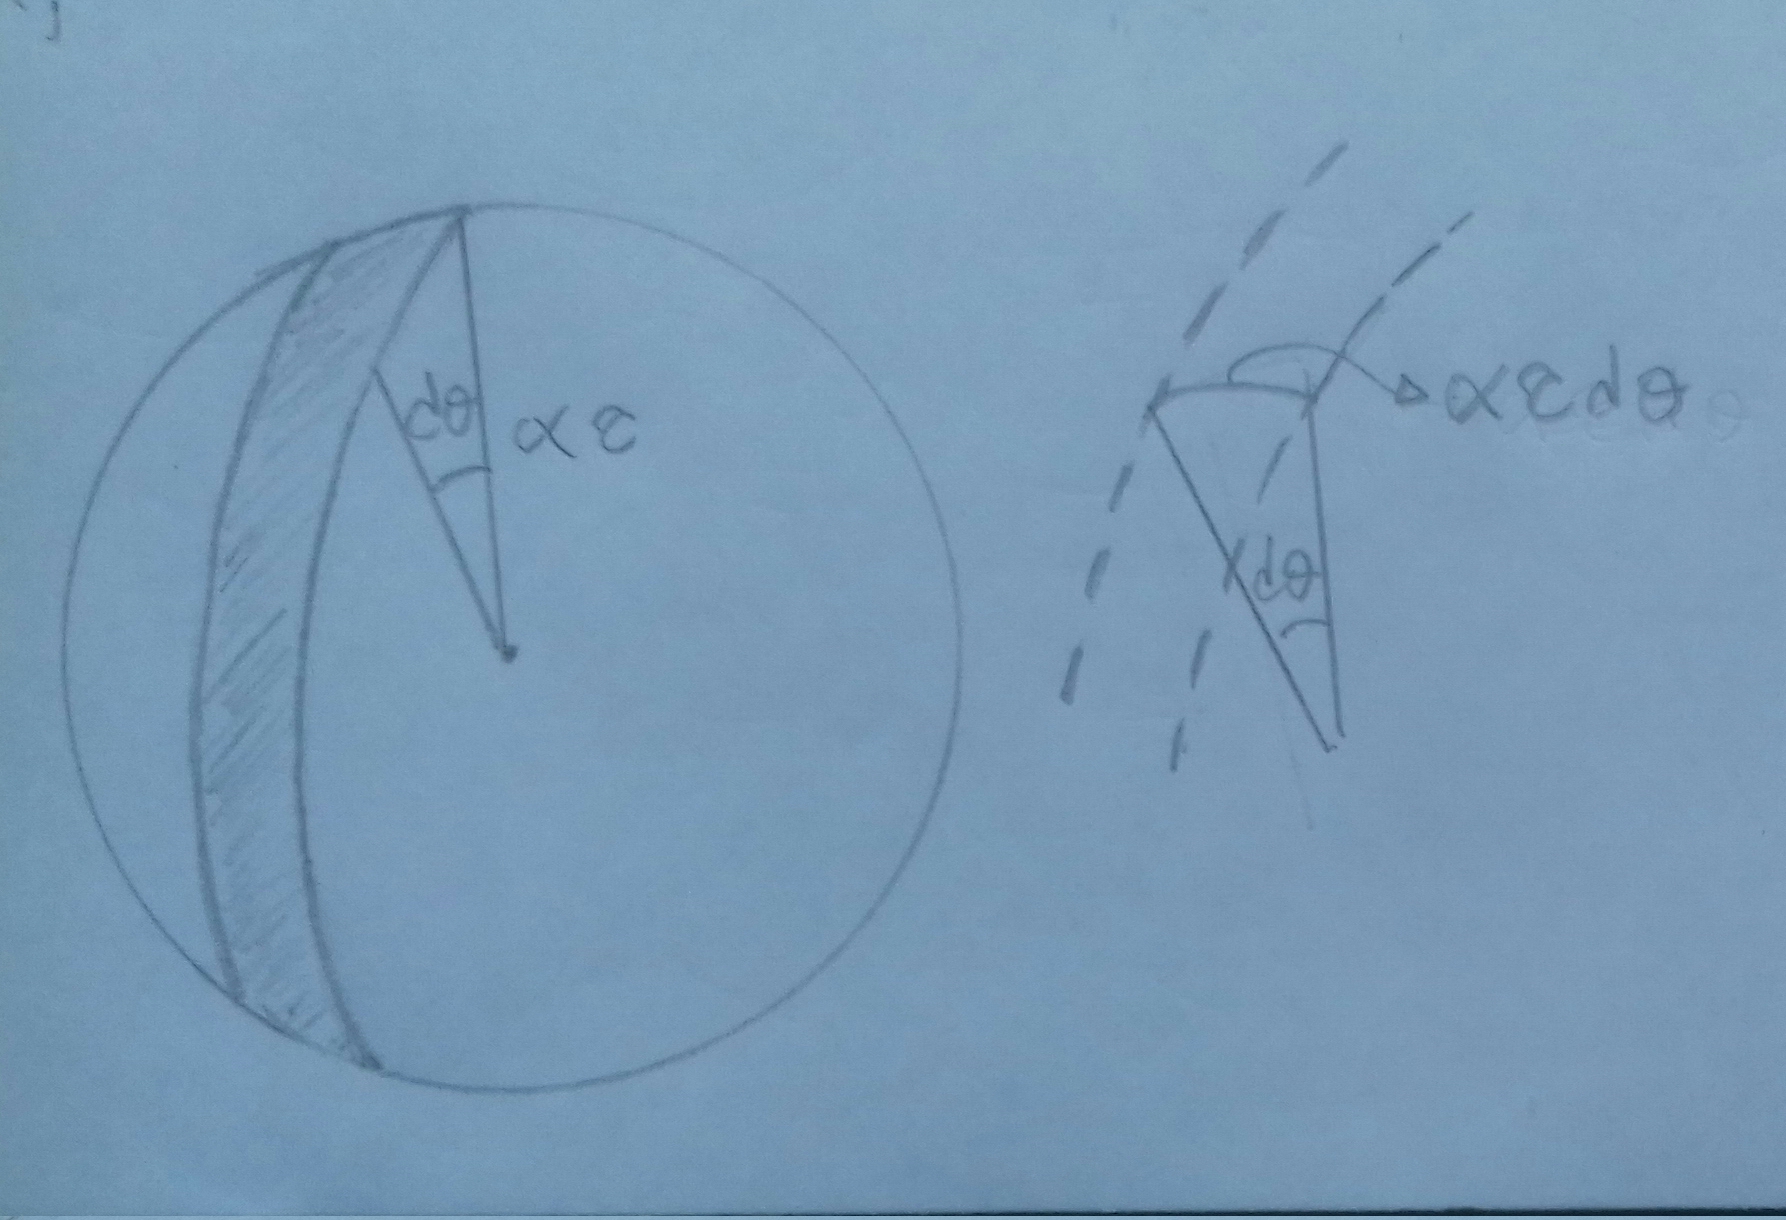 dθ
αε
αεdθ
dθ